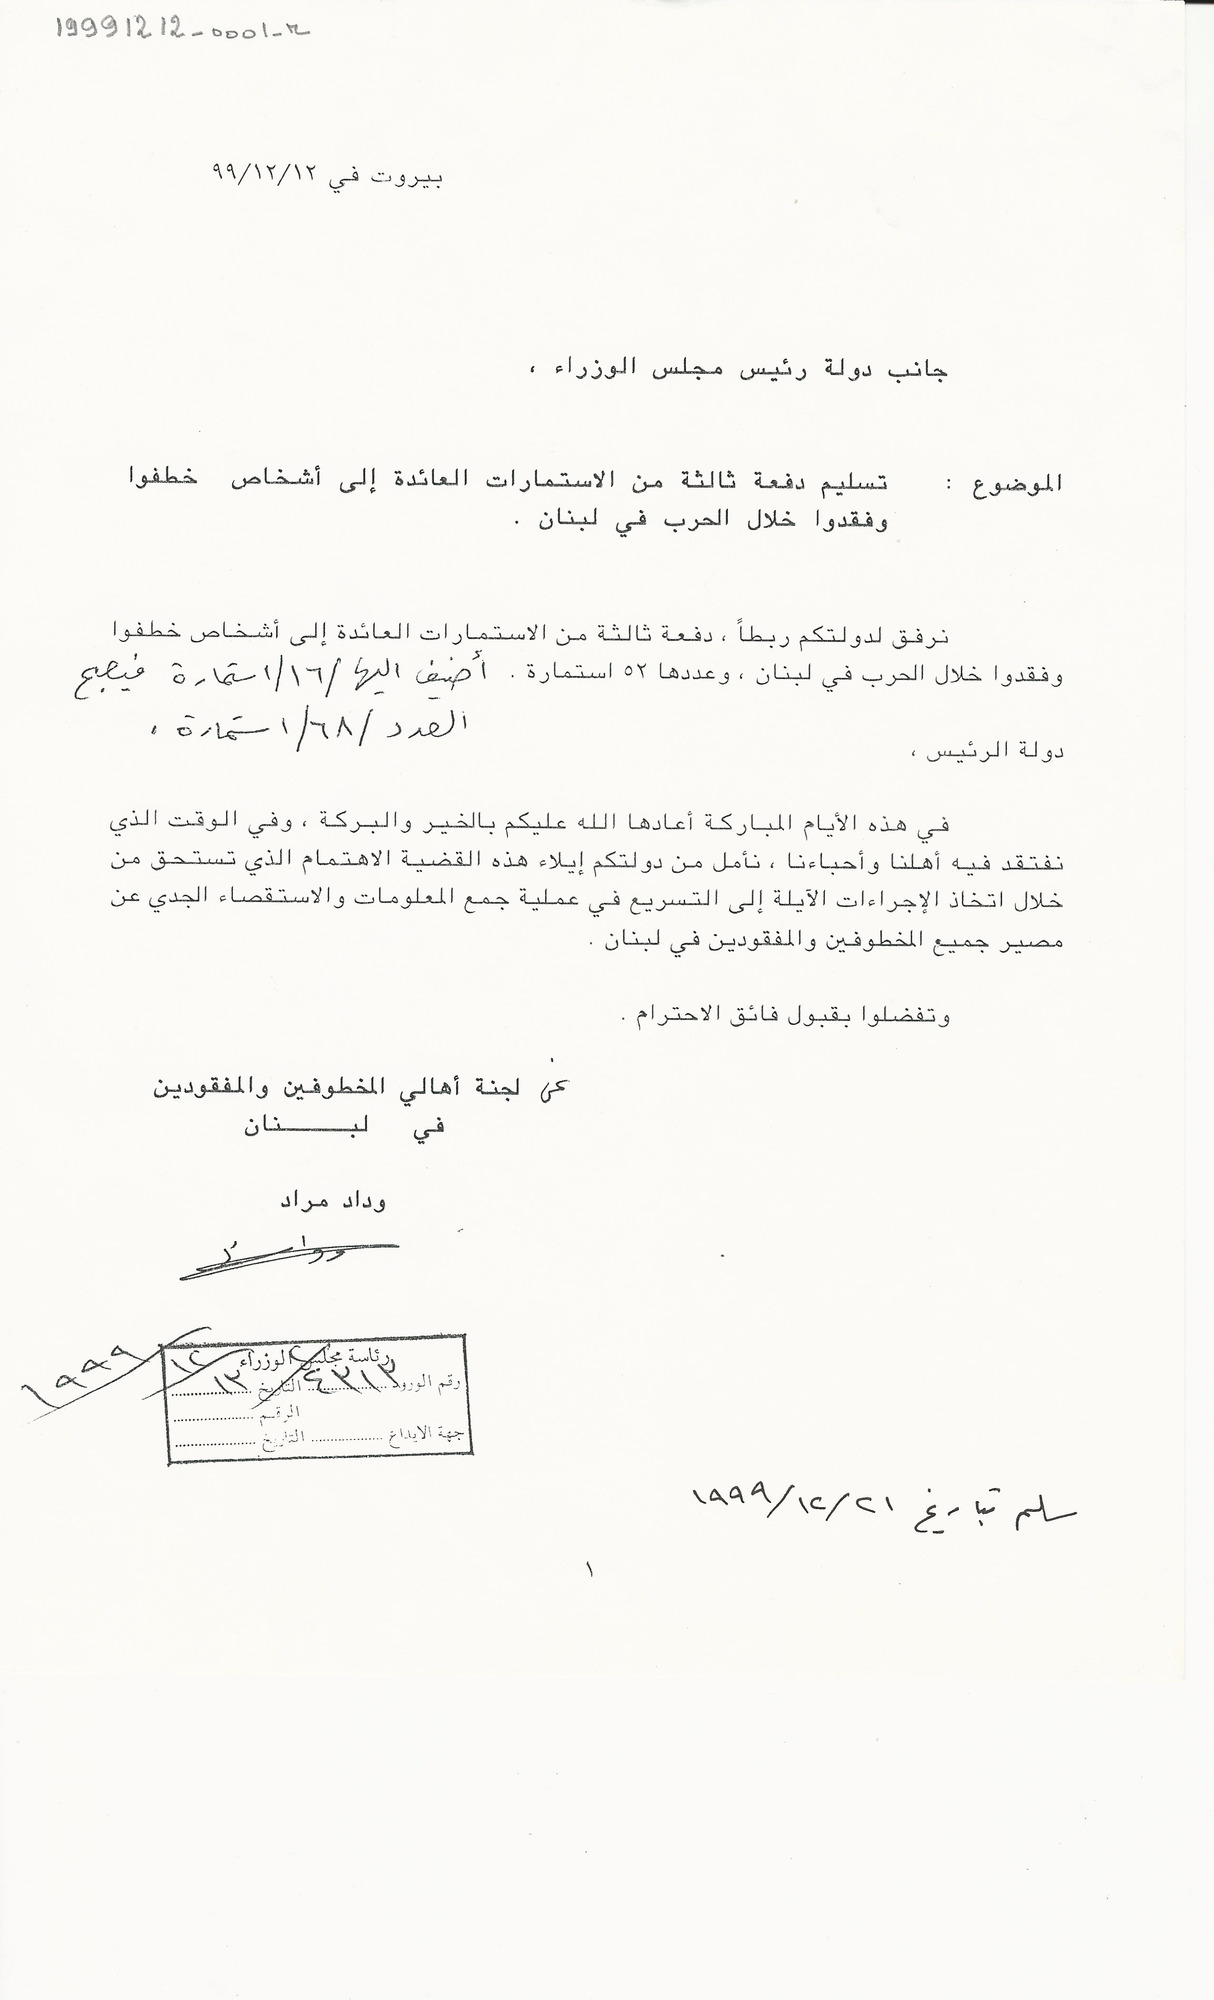 19991212-0001-r
بيروت في ٩٩/١٢/١٢
جانب دولة رئيس مجلس الوزراء ،
الموضوع : تسليم دفعة ثالثة من الاستمارات العائدة إلى أشخاص خطفوا
وفقدوا خلال الحرب في لبنان .
نرفق لدولتكم ربطاً ، دفعة ثالثة من الاستمارات العائدة إلى أشخاص خطفوا
وفقدوا خلال الحرب في لبنان ، وعددها ٥٢ استمارة . أضيف اليها /١٦/١ استمارة فيصبح
العدد /٦٨/١ استمارة ،
دولة الرئيس ،
في هذه الأيام المباركة أعادها الله عليكم بالخير والبركة ، وفي الوقت الذي
نفتقد فيه أهلنا وأحباءنا ، نأمل من دولتكم إيلاء هذه القضية الاهتمام الذي تستحق من
خلال اتخاذ الإجراءات الآيلة إلى التسريع في عملية جمع المعلومات والاستقصاء الجدي عن
مصير جميع المخطوفين والمفقودين في لبنان .
وتفضلوا بقبول فائق الاحترام .
عن لجنة أهالي المخطوفين والمفقودين
في لبـــــنان
وداد مراد
رئاسة مجلس الوزراء
رقم الورود ٤٣١٣ التاريخ ١٣/١٢/١٩٩٩
الرقم
جهة الايداع التاريخ
سلم بتاريخ ٢١/١٢/١٩٩٩
١